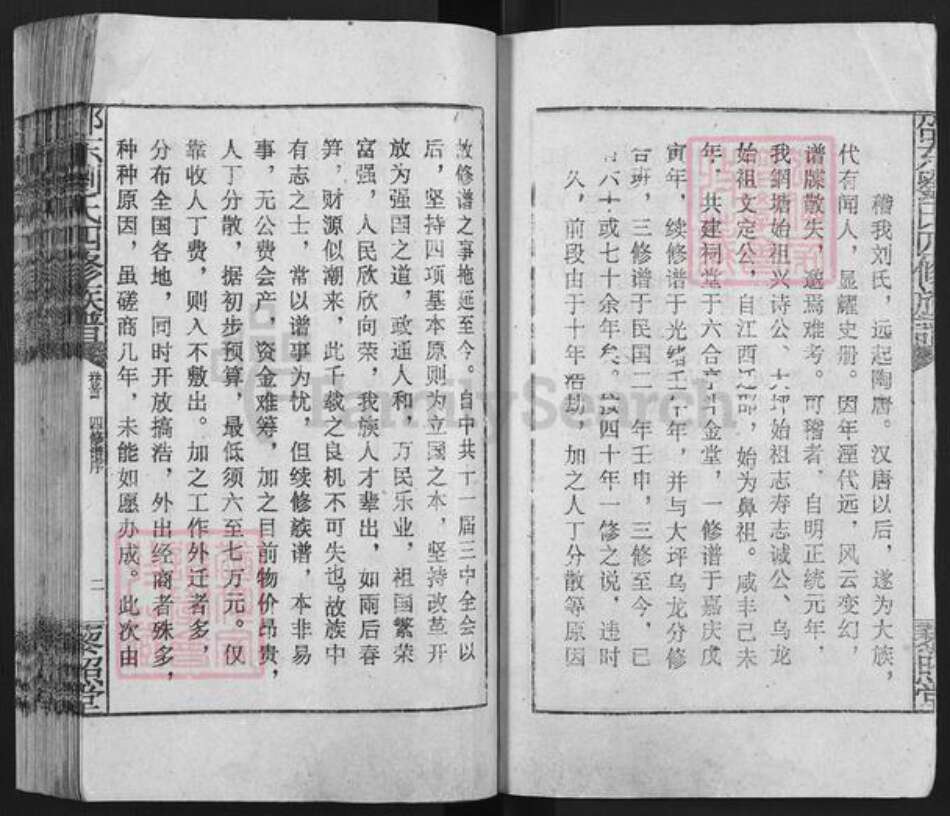 稽我刘氏，远起陶唐。汉唐以后，遂为大族，
代有闻人，显耀史册。因年湮代远，风云变幻，
谱牒散失，邈焉难考。可稽者，自明正统元年，
我鹅塘始祖兴诗公、大坪始祖志寿志诚公、乌龙
始祖文定公，自江西迁邵，始为鼻祖。咸丰己未
年，共建祠堂于六合亭十金堂，一修谱于嘉庆戊
寅年，续修谱于光绪壬午年，并与大坪乌龙分修
合班，三修谱于民国二 年壬申，三修至今，已
六十或七十余年矣。按四十年一修之说，违时
久，前段由于十年浩劫，加之人丁分散等原因
故修谱之事拖延至今。自中共十一届三中全会以
后，坚持四项基本原则为立国之本，坚持改革开
放为强国之道，政通人和，万民乐业，祖国繁荣
富强，人民欣欣向荣，我族人才辈出，如雨后春
笋，财源似潮来，此千载之良机不可失也。故族中
有志之士，常以谱事为忧，但续修族谱，本非易
事，无公费会产，资金难筹，加之目前物价昂贵，
人丁分散，据初步预算，最低须六至七万元。仅
靠收人丁费，则入不敷出。加之工作外迁者多，
分布全国各地，同时开放搞活，外出经商者殊多，
种种原因，虽磋商几年，未能如愿办成。此次由
邵东刘氏四修族谱
卷首 四修谱序
二
藜照堂
FamilySearch